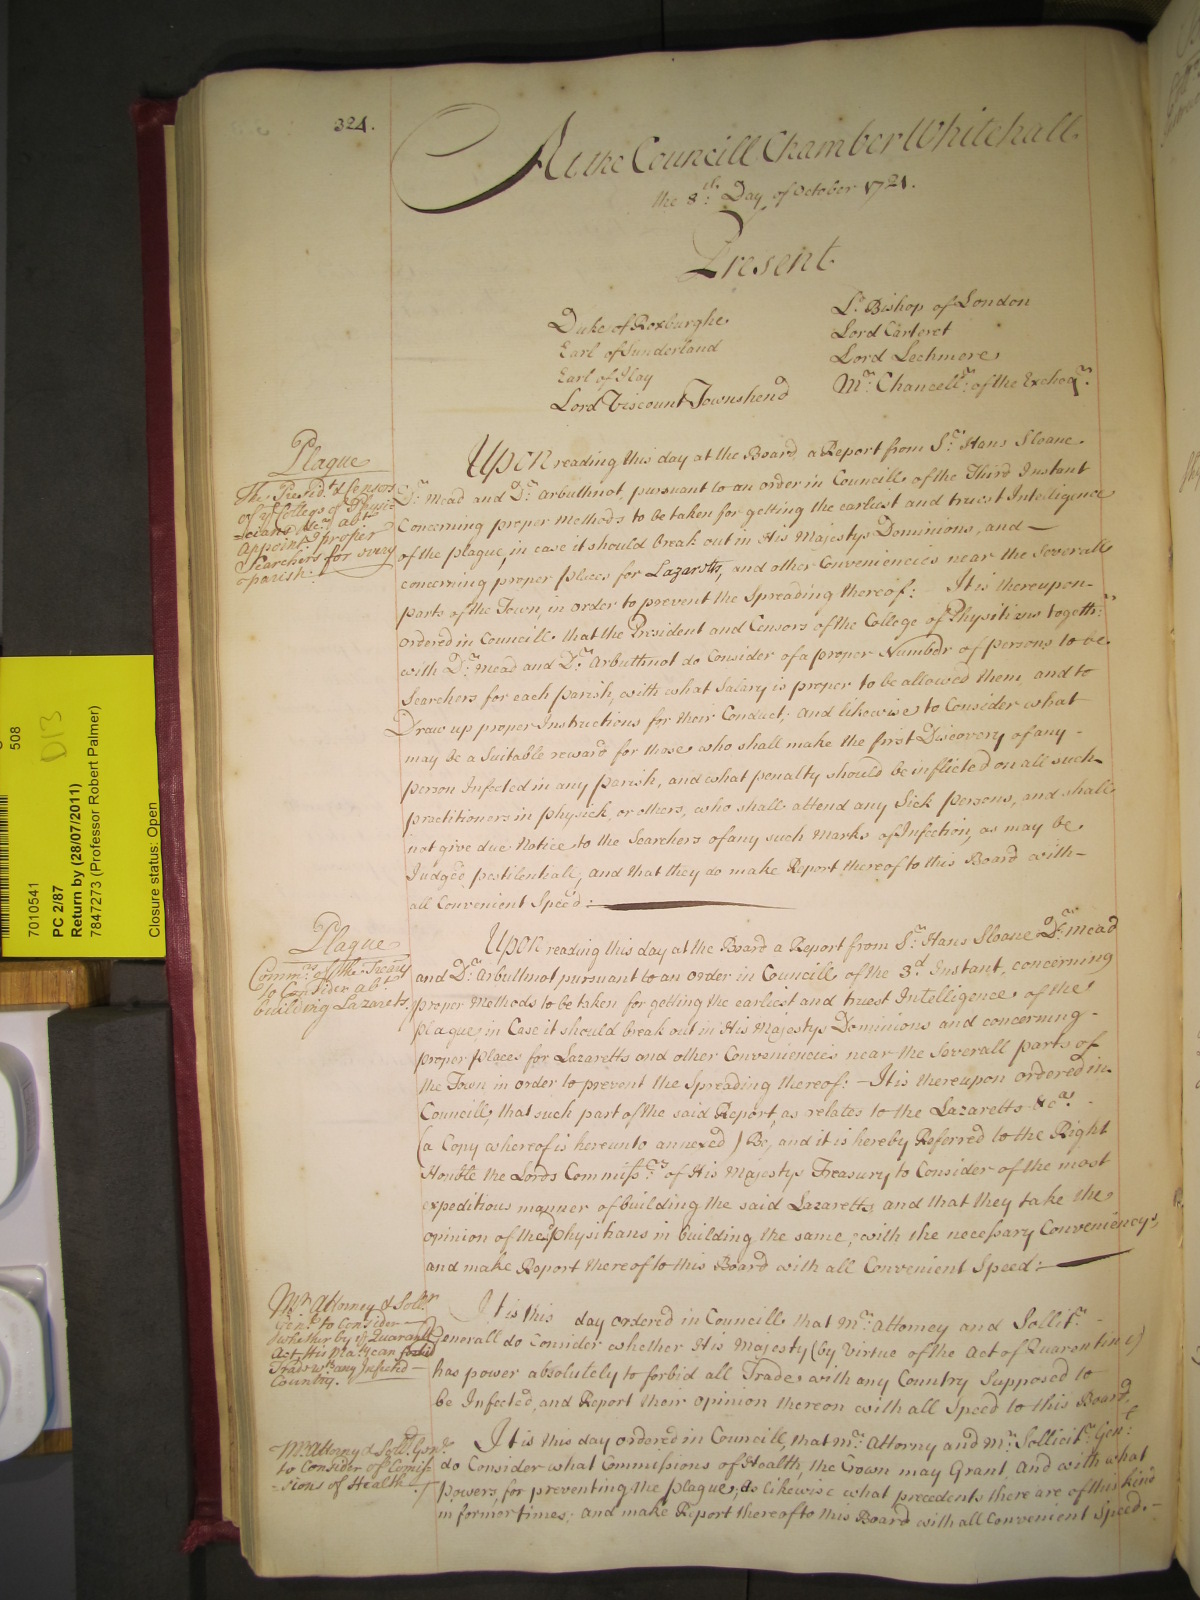 324.
At the Councill Chamber Whitehall
the 8th: Day of October 1721.
Present
Duke of Roxburghe
Earl of Sunderland
Earl of Ilay
Lord Viscount Townshend
Ld. Bishop of London
Lord Carteret
Lord Lechmere
Mr. Chancellr: of the Excheqr.
Plague
The Presidt. & Censors
of ye College of Physi-
-cians &ca. abt.
Appointg. proper
Searchers for every
parish:
Upon reading this day at the Board, a Report from Sr. Hans Sloane
Dr. Mead and Dr. Arbuthnot, pursuant to an order in Councill of the Third Instant
Concerning proper Methods to be taken for getting the earliest and truest Intelligence
of the plague, in case it should break out in His Majestys Dominions, and—
concerning proper places for Lazaretts, and other Conveniencies near the Severall
parts of the Town, in order to prevent the Spreading thereof: It is thereupon-
ordered in Councill that the President and Censors of the College of Physitians togethr:
with Dr. Mead and Dr. Arbuthnot do Consider of a proper Number of persons to be
Searchers for each parish, with what Salary is proper to be allowed them, and to
Draw up proper Instructions for their Conduct; and likewise to Consider what
may be a Suitable reward for those who shall make the first Discovery of any -
person Infected in any parish, and what penalty should be inflicted on all such-
practitioners in physick, or others, who shall attend any Sick persons, and shall
not give due Notice to the Searchers of any such Marks of Infection, as may be
Judged pestilentiall, and that they do make Report thereof to this Board with-
all Convenient Speed:
Plague
Commrs. of the Treãry
to Consider abt.
building Lazarets.
Upon reading this day at the Board a Report from Sr. Hans Sloane Dr. Mead
and Dr. Arbuthnot pursuant to an order in Councill of the 3d. Instant, concerning
proper Methods to be taken for getting the earliest and truest Intelligence of the
plague, in Case it should break out in His Majestys Dominions and concerning -
proper places for Lazaretts and other Conveniencies near the Severall parts of
the Town in order to prevent the Spreading thereof: - It is thereupon ordered in
Councill, that such part of the said Report, as relates to the Lazaretts &ca. -
(a Copy whereof is hereunto annexed) Be, and it is hereby Referred to the Right
Honble the Lords Commissrs. of His Majestys Treasury to Consider of the most
expeditious manner of building the said Lazaretts, and that they take the
opinion of the physitians in building the same, with the necessary Conveniencys,
and make Report thereof to this Board with all Convenient Speed:-
Mr. Attorney & Sollr.
Genll. to Consider
whether by ye Quarantn.
Act, His Maty. can forbid
Trade wth. any Infected—
Country.
It is this day ordered in Councill that Mr. Attorney and Sollitr. -
Generall do Consider whether His Majesty (by virtue of the Act of Quarentine)
has power absolutely to forbid all Trade with any Country Supposed to
be Infected, and Report their opinion thereon with all Speed to this Board.
Mr. Attorny & Sollr. Genll.
to Consider of Comiss-
-sions of Health
It is this day ordered in Councill, that Mr. Attorny and Mr. Sollicitr. Genl:
do Consider what Commissions of Health, the Crown may Grant, and with what
powers, for preventing the plague; As likewise what precedents there are of this kind
in former times; and make Report thereof to this Board with all Convenient Speed.-
508
D13
7010541
PC 2/87
Return by (28/07/2011)
7847273 (Professor Robert Palmer)
Closure status: Open